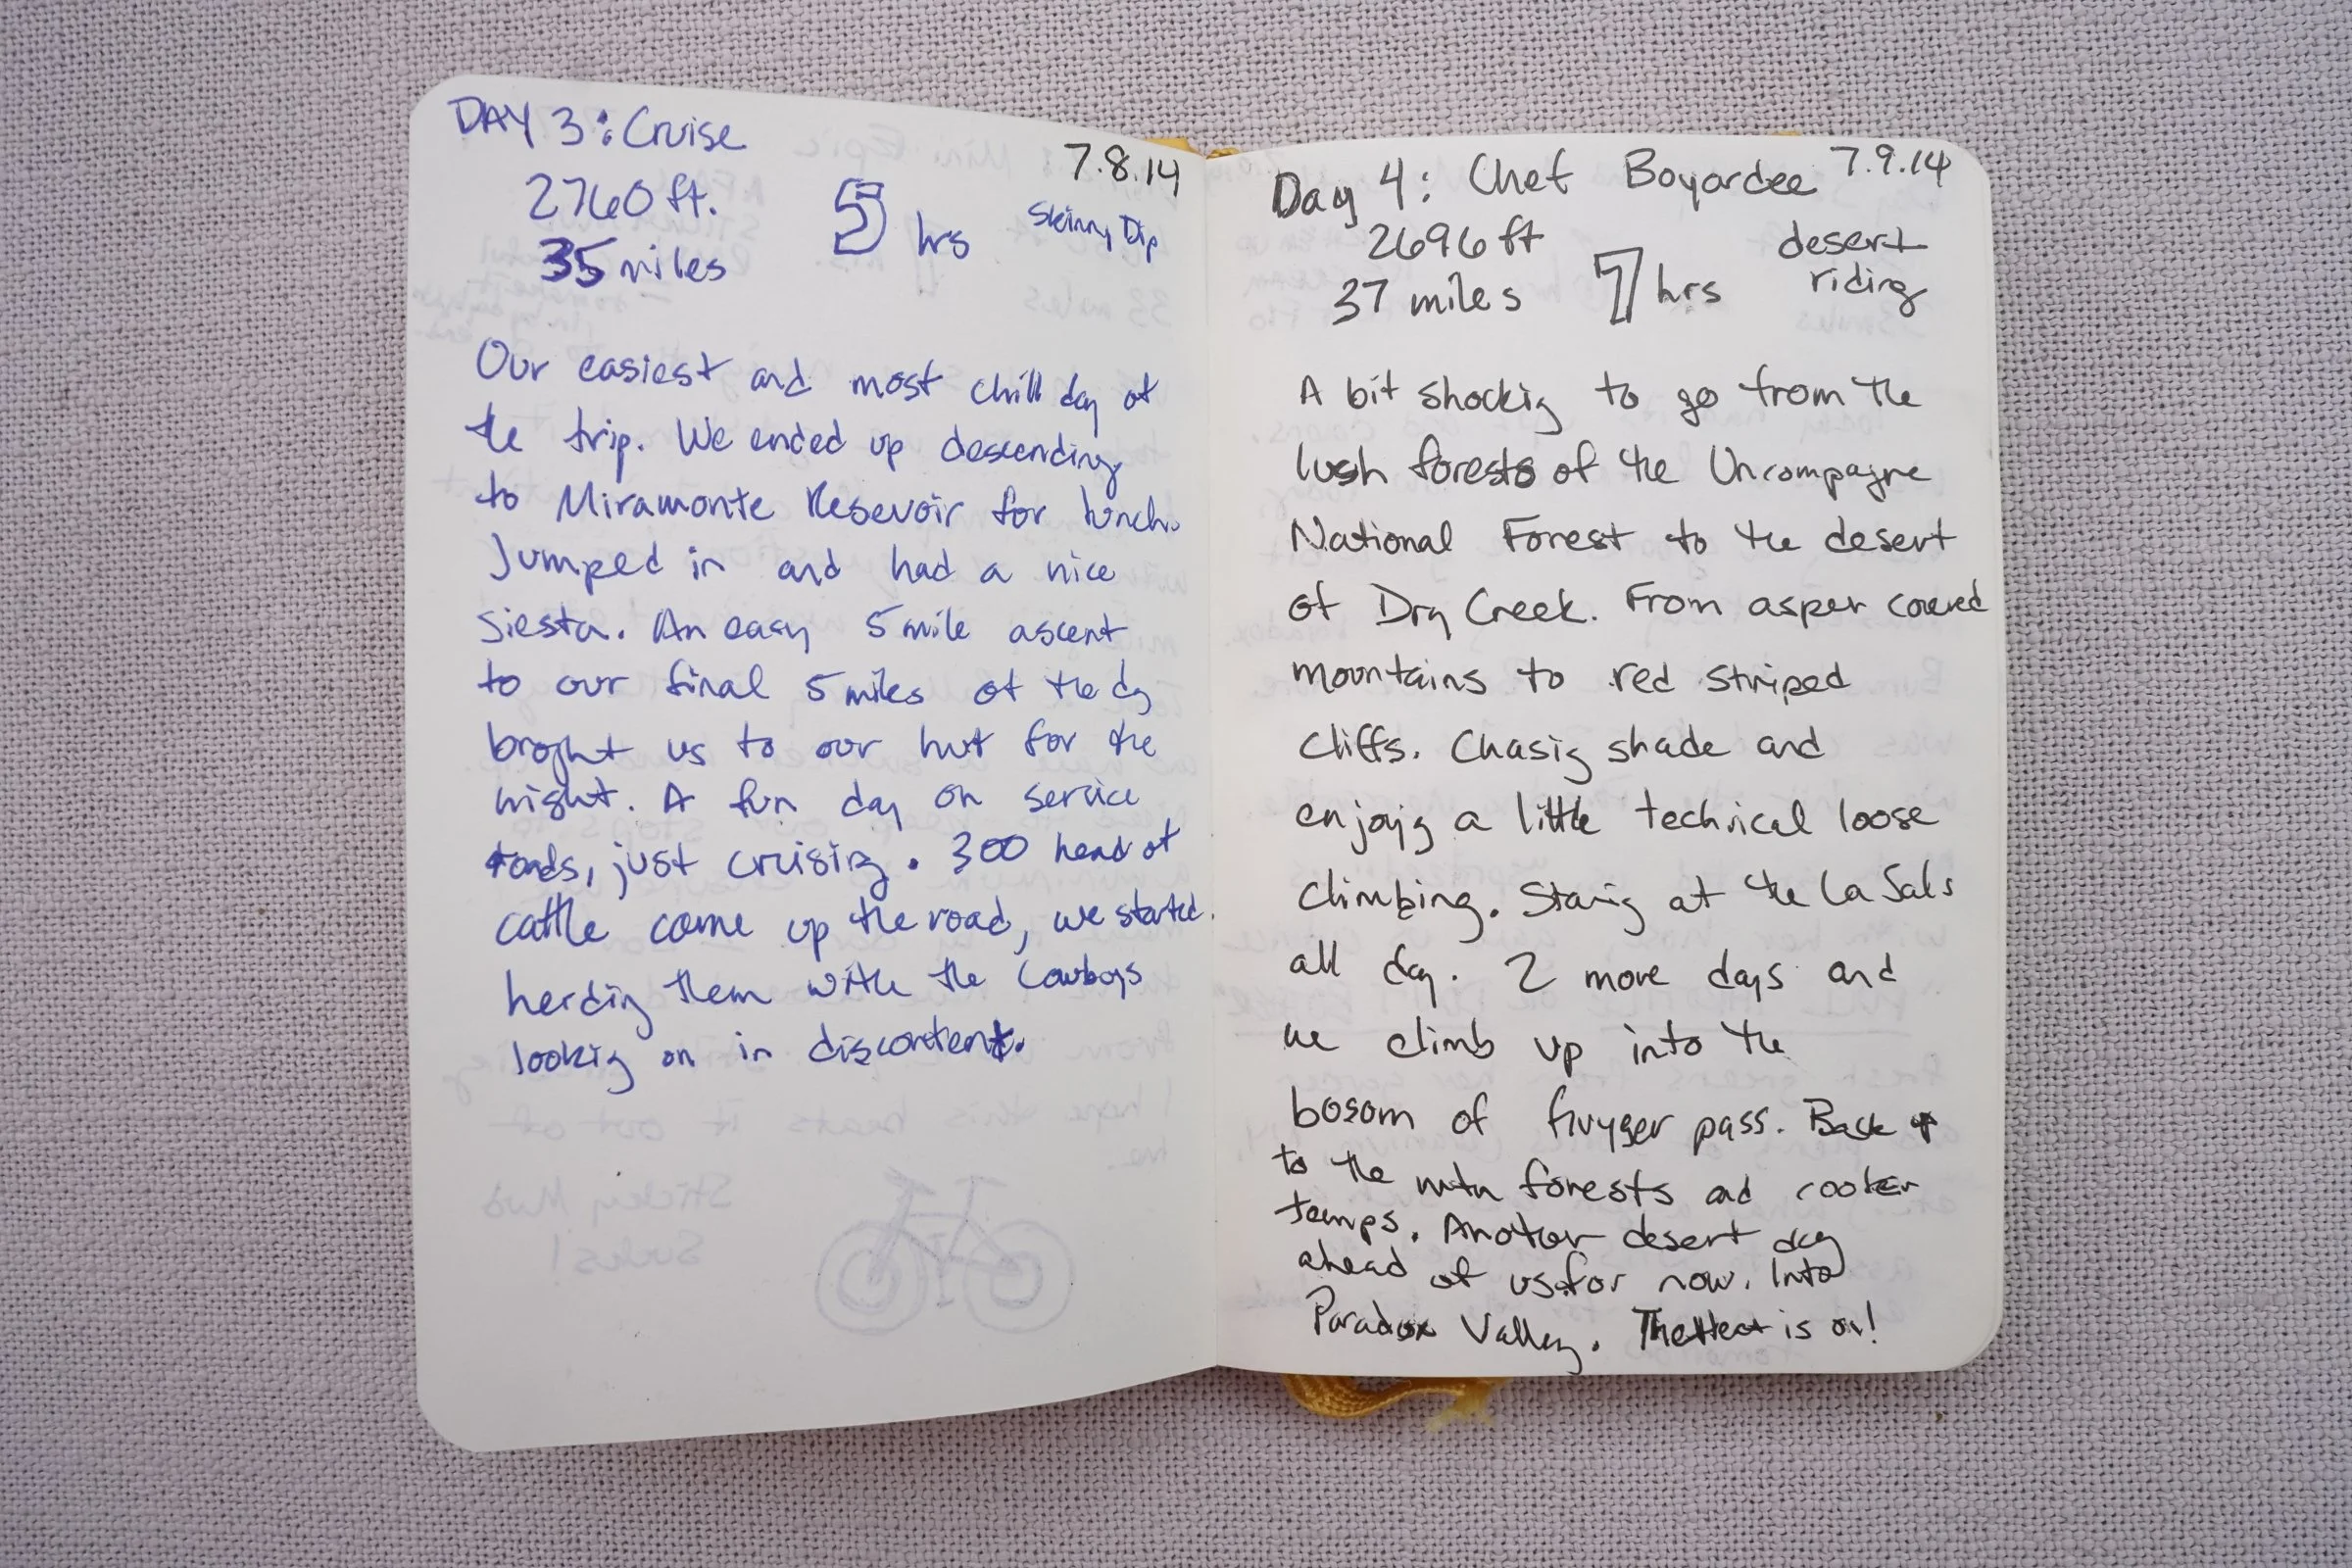 DAY 3: Cruise
7.8.14
2760 ft.
5 hrs
Skinny Dip
35 miles
Our easiest and most chill day of
the trip. We ended up descending
to Miramonte Resevoir for lunch.
Jumped in and had a nice
siesta. An easy 5 mile ascent
to our final 5 miles of the dy
broght us to our hut for the
night. A fun day on service
roads, just cruising. 300 head of
cattle came up the road, we started
herding them with the Cowboys
looking on in discontent.
Day 4: Chef Boyardee 7.9.14
2696 ft
7 hrs
desert
riding
37 miles
A bit shocking to go from the
lush forests of the Uncompagne
National Forest to the desert
of Dry Creek. From aspen covered
mountains to red striped
cliffs. Chasing shade and
enjoyg a little technical loose
climbing. Staring at the La Sals
all day. 2 more days and
we climb up into the
bosom of pass. Back up
to the mtn forests and cooler
temps. Another desert day
ahead of us for now. Into
Paradox Valley. The Heat is on!
Sticky Mud
Sucks!